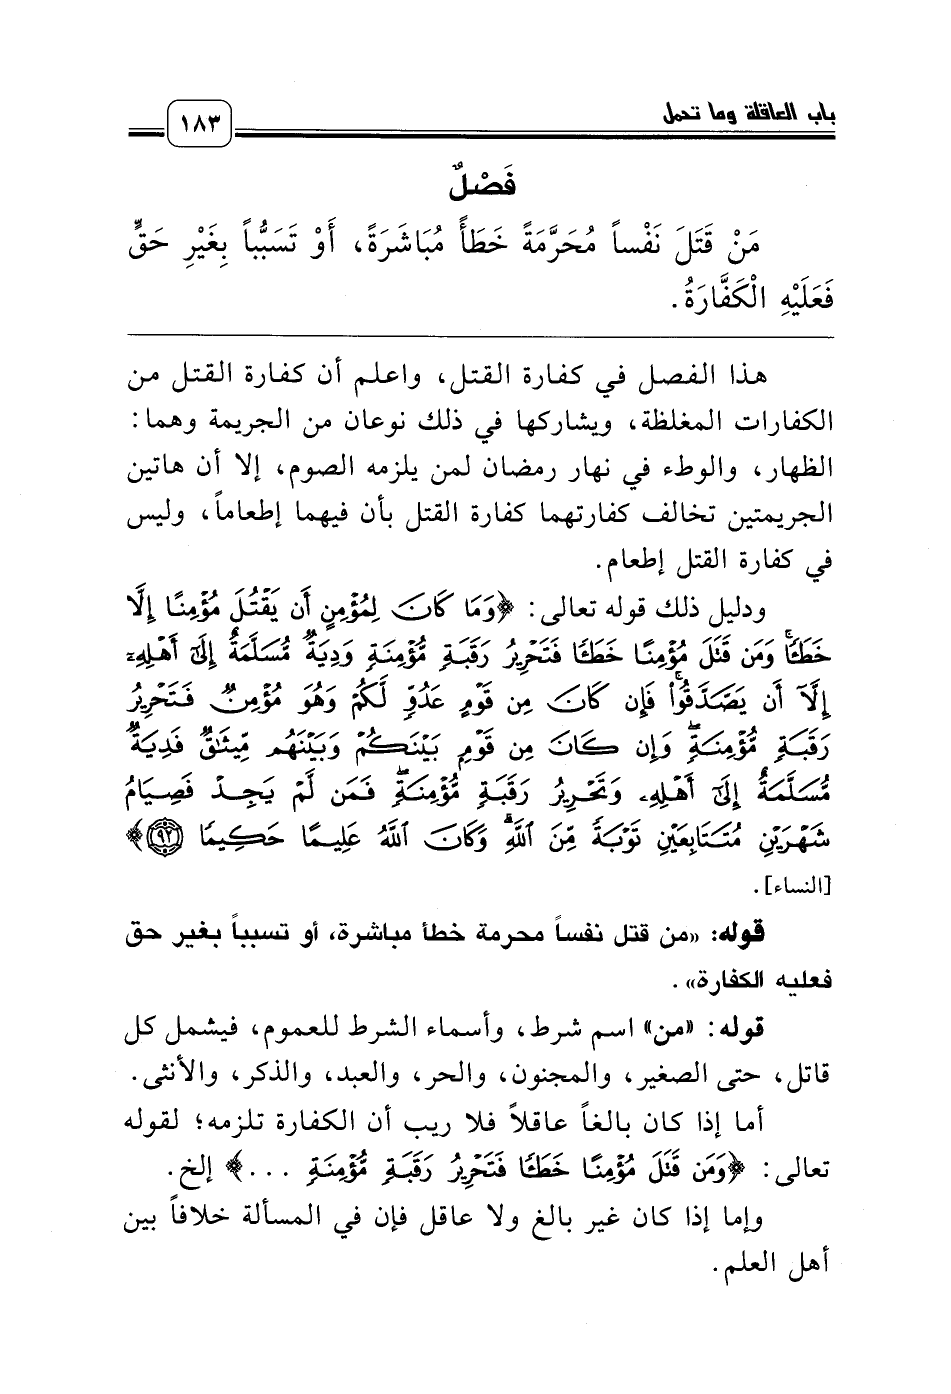 باب العاقلة وما تحمل
١٨٣
فَصْلٌ
مَنْ قَتَلَ نَفْساً مُحَرَّمَةً خَطَأً مُبَاشَرَةً، أَوْ تَسَبُّباً بِغَيْرِ حَقٍّ
فَعَلَيْهِ الْكَفَّارَةُ.
هذا الفصل في كفارة القتل، واعلم أن كفارة القتل من
الكفارات المغلظة، ويشاركها في ذلك نوعان من الجريمة وهما:
الظهار، والوطء في نهار رمضان لمن يلزمه الصوم، إلا أن هاتين
الجريمتين تخالف كفارتهما كفارة القتل بأن فيهما إطعاماً، وليس
في كفارة القتل إطعام.
ودليل ذلك قوله تعالى: ﴿وَمَا كَانَ لِمُؤْمِنٍ أَن يَقْتُلَ مُؤْمِنًا إِلَّا
خَطَـًٔا ۚ وَمَن قَتَلَ مُؤْمِنًا خَطَـًٔا فَتَحْرِيرُ رَقَبَةٍ مُّؤْمِنَةٍ وَدِيَةٌ مُّسَلَّمَةٌ إِلَىٰٓ أَهْلِهِۦٓ
إِلَّآ أَن يَصَّدَّقُوا۟ ۚ فَإِن كَانَ مِن قَوْمٍ عَدُوٍّ لَّكُمْ وَهُوَ مُؤْمِنٌ فَتَحْرِيرُ
رَقَبَةٍ مُّؤْمِنَةٍ ۖ وَإِن كَانَ مِن قَوْمٍ بَيْنَكُمْ وَبَيْنَهُم مِّيثَـٰقٌ فَدِيَةٌ
مُّسَلَّمَةٌ إِلَىٰٓ أَهْلِهِۦ وَتَحْرِيرُ رَقَبَةٍ مُّؤْمِنَةٍ ۖ فَمَن لَّمْ يَجِدْ فَصِيَامُ
شَهْرَيْنِ مُتَتَابِعَيْنِ تَوْبَةً مِّنَ ٱللَّهِ ۗ وَكَانَ ٱللَّهُ عَلِيمًا حَكِيمًا ﴿٩٢﴾﴾
[النساء].
قوله: «من قتل نفساً محرمة خطأ مباشرة، أو تسبباً بغير حق
فعليه الكفارة».
قوله: «من» اسم شرط، وأسماء الشرط للعموم، فيشمل كل
قاتل، حتى الصغير، والمجنون، والحر، والعبد، والذكر، والأنثى.
أما إذا كان بالغاً عاقلاً فلا ريب أن الكفارة تلزمه؛ لقوله
تعالى: ﴿وَمَن قَتَلَ مُؤْمِنًا خَطَـًٔا فَتَحْرِيرُ رَقَبَةٍ مُّؤْمِنَةٍ ...﴾ إلخ.
وإما إذا كان غير بالغ ولا عاقل فإن في المسألة خلافاً بين
أهل العلم.